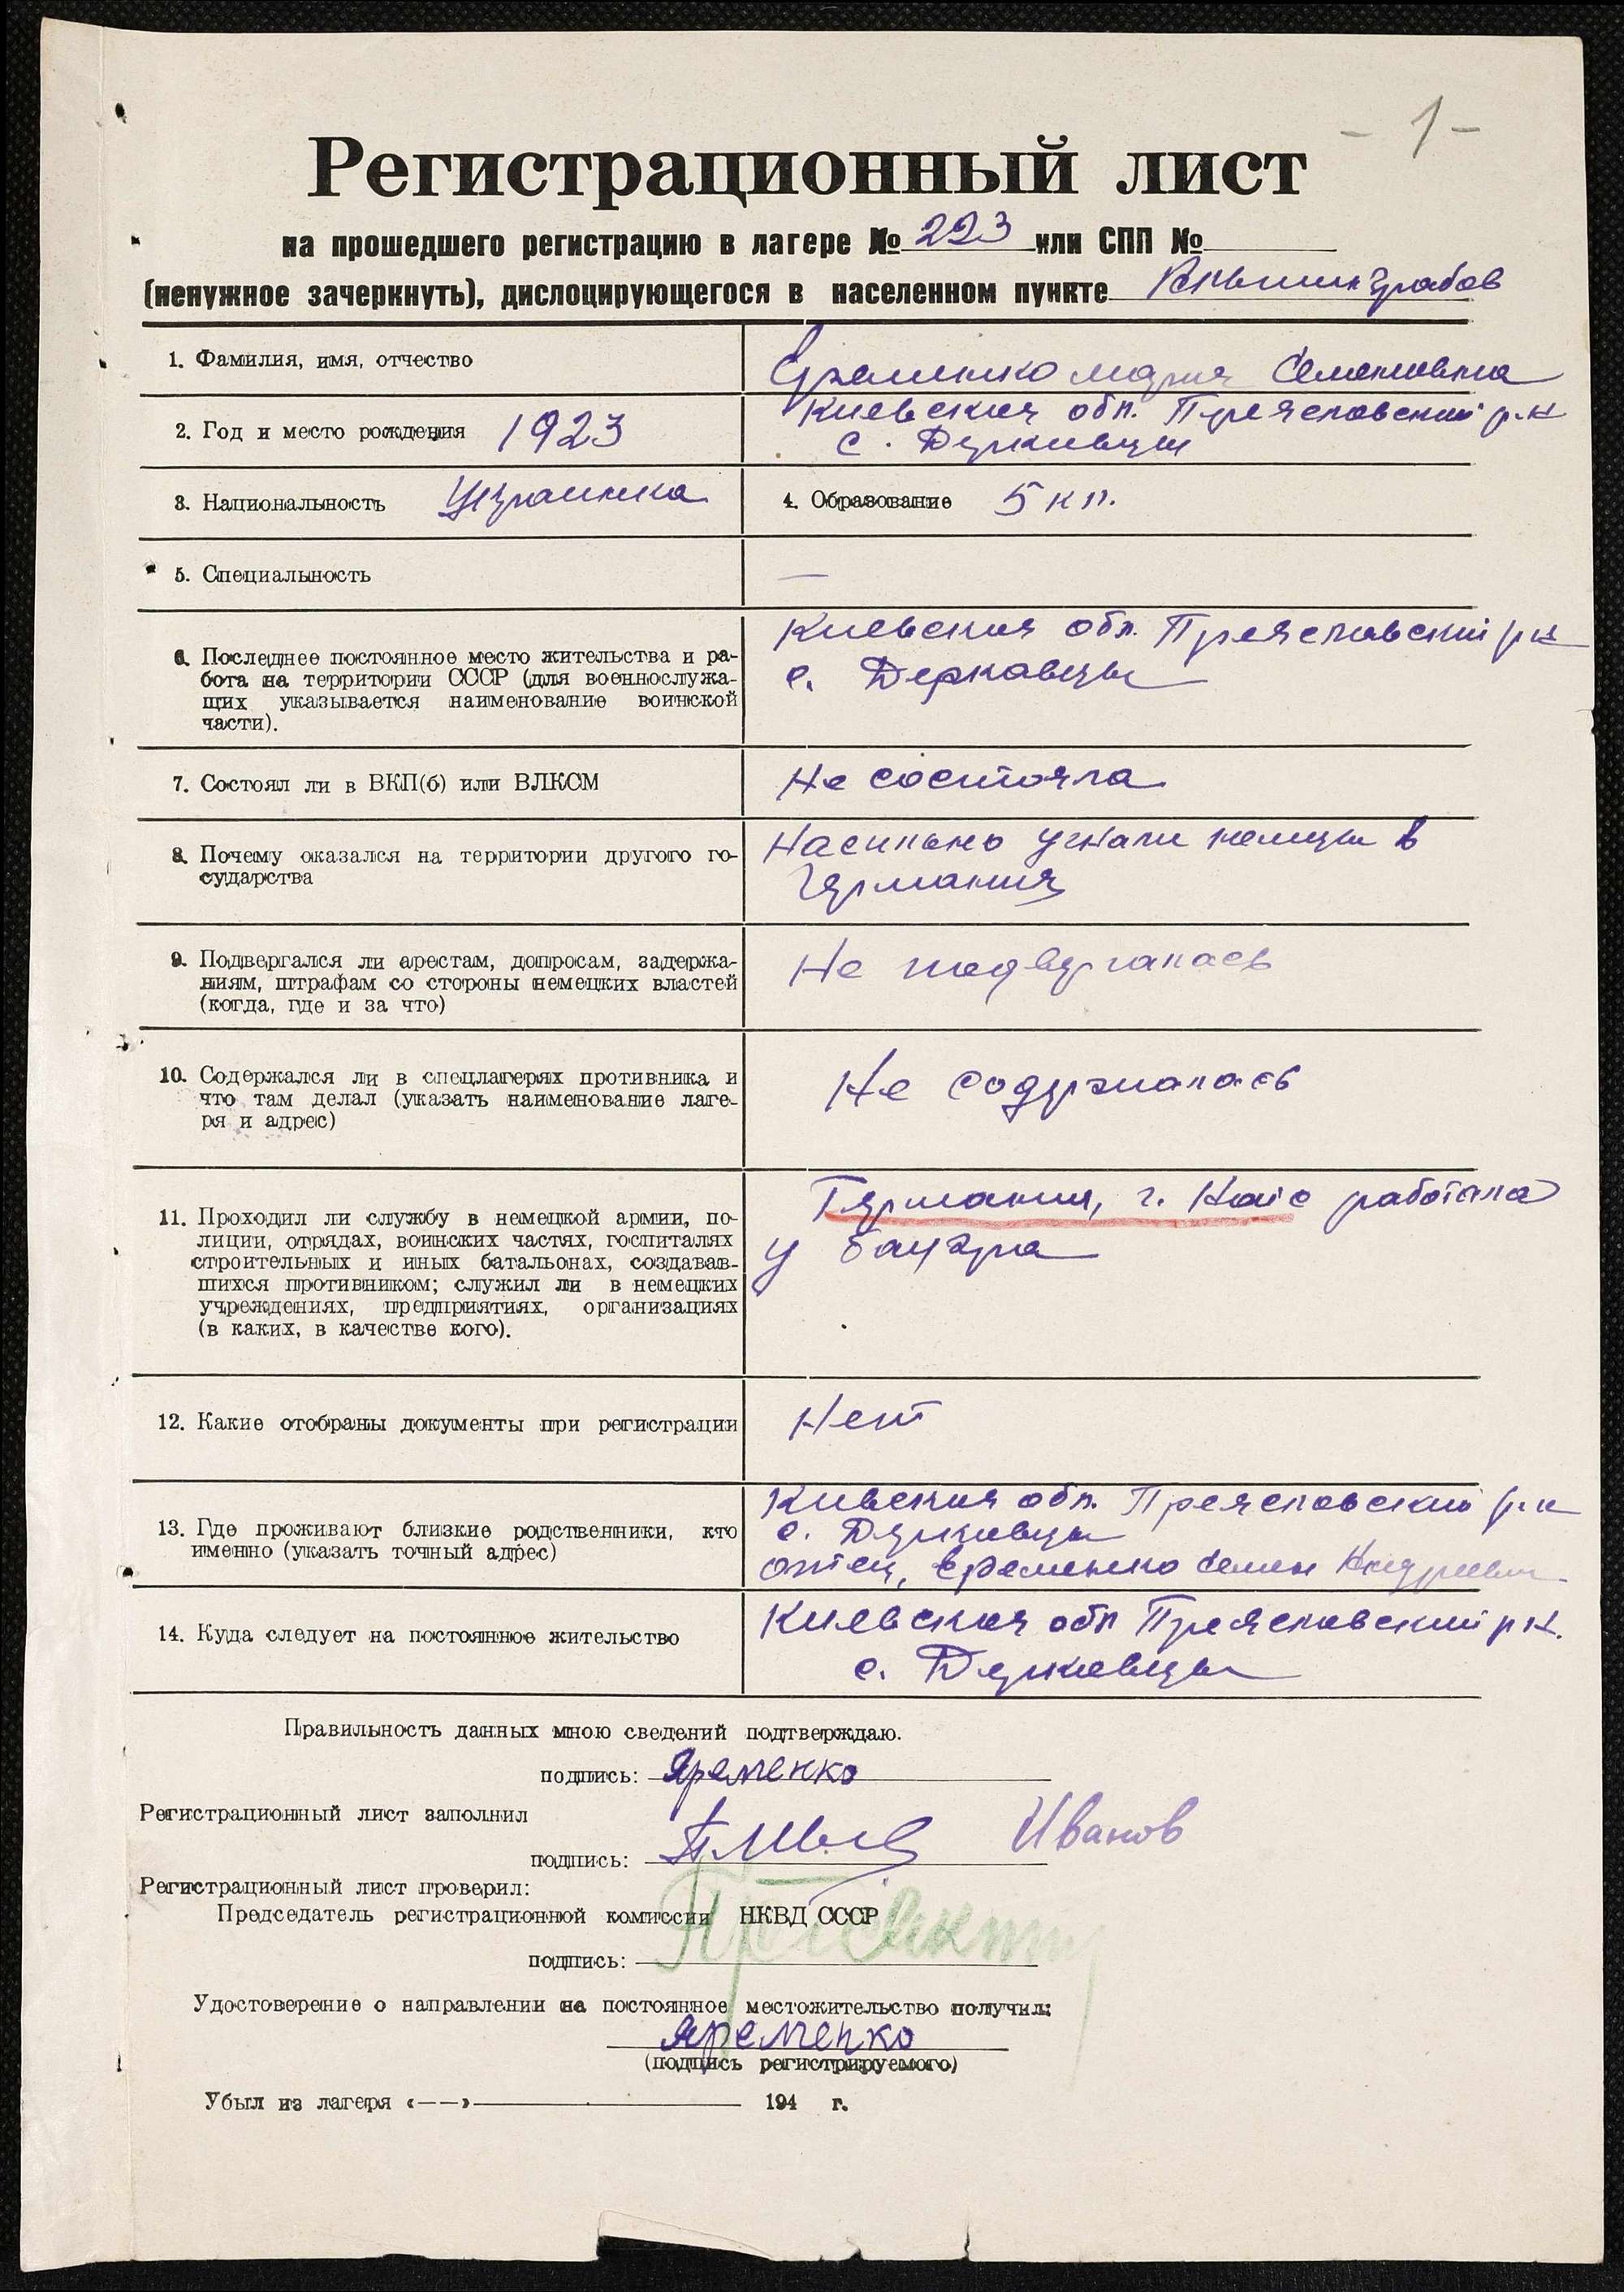 - 1 -
Регистрационный лист
на прошедшего регистрацию в лагере № 223 или СПП №
(ненужное зачеркнуть), дислоцирующегося в населенном пункте
1. Фамилия, имя, отчество
Еременко мария Семеновна
2. Год и место рождения 1923
Киевская обл. Преяславский р-н
с. Деркивцы
3. Национальность Украинка
4. Образование 5 кл.
5. Специальность
—
6. Последнее постоянное место жительства и ра-
бота на территории СССР (для военнослужа-
щих указывается наименование воинской
части).
Киевская обл. Преяславский рн
с. Деркавцы
7. Состоял ли в ВКП(б) или ВЛКСМ
Не состояла
8. Почему оказался на территории другого го-
сударства
Насильно угнали немцы в
Германия
9. Подвергался ли арестам, допросам, задержа-
ниям, штрафам со стороны немецких властей
(когда, где и за что)
Не подвергалась
10. Содержался ли в спецлагерях противника и
что там делал (указать наименование лаге-
ря и адрес)
Не содержалась
11. Проходил ли службу в немецкой армии, по-
лиции, отрядах, воинских частях, госпиталях
строительных и иных батальонах, создавав-
шихся противником; служил ли в немецких
учреждениях, предприятиях, организациях
(в каких, в качестве кого).
Германия, г. работала
у бауэра
12. Какие отобраны документы при регистрации
Нет
13. Где проживают близкие родственники, кто
именно (указать точный адрес)
Кивская обл. Преяславский р-н
с. Деркивцы
отец, Еременко Семен
14. Куда следует на постоянное жительство
Киевская обл Преяславский рн.
с. Деркавцы
Правильность данных мною сведений подтверждаю.
подпись: Яременко
Регистрационный лист заполнил
подпись: Иванов
Регистрационный лист проверил:
Председатель регистрационной комиссии НКВД СССР
подпись:
Удостоверение о направлении на постоянное местожительство получил:
Яременко
(подпись регистрируемого)
Убыл из лагеря «——» 194 г.